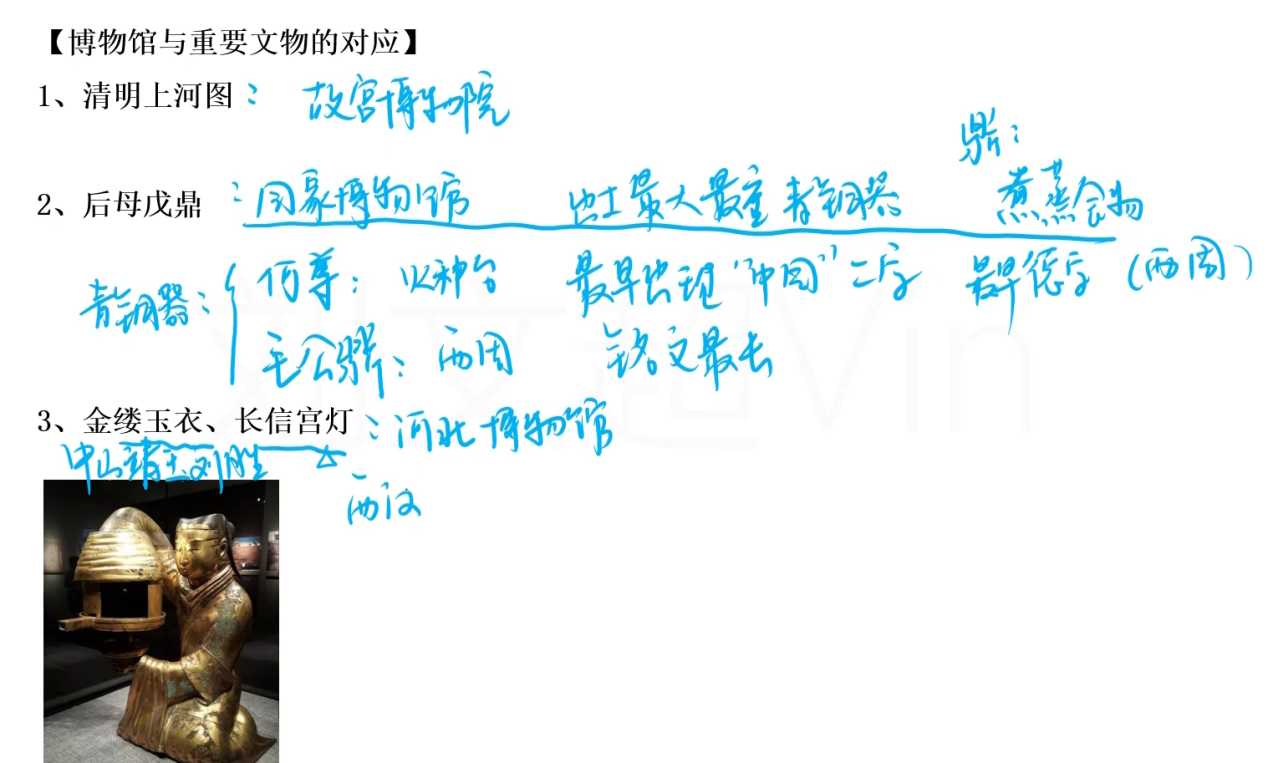 【博物馆与重要文物的对应】
1、清明上河图：故宫博物院
鼎：
2、后母戊鼎：国家博物馆 出土最大最重青铜器 煮蒸食物
青铜器：
何尊： 最早出现“中国”二字 最早德字（西周）
毛公鼎：西周 铭文最长
3、金缕玉衣、长信宫灯：河北博物馆
中山靖王刘胜
西汉